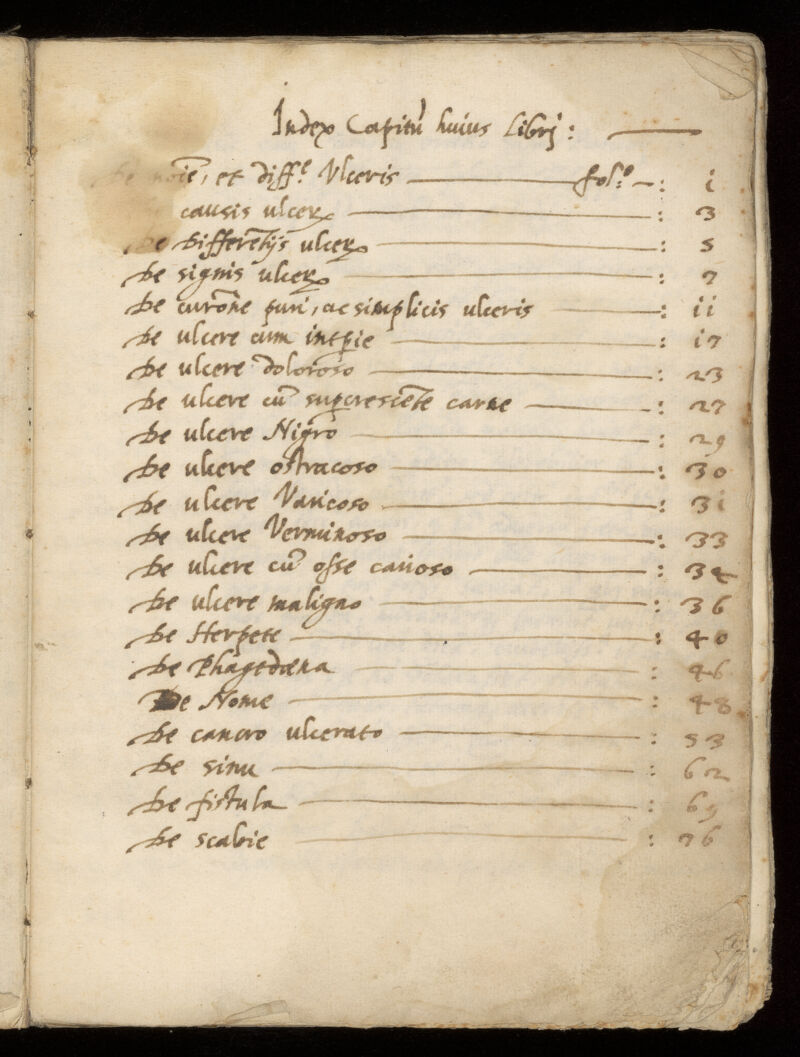 Index Capitũ huius Librj: —
De noĩe, et diff.e Vlceris — fol.o — : i
causis ulcerꝝ — : 3
De Differẽtijs ulcerꝝ — : 5
De signis ulcerꝝ — : 7
De curõne puri, ac simplicis ulceris — : ii
De ulcere cum intꝑie — : i7
De ulcere doloroso — : 23
De ulcere cũ suꝑcrescẽte carne — : 27
De ulcere Nigro — : 29
De ulcere ostracoso — : 30
De ulcere Varicoso — : 3i
De ulcere Verminoso — : 33
De ulcere cũ osse carioso — : 34
De ulcere maligno — : 36
De Herpete — : 40
De Phagedæna — : 46
De Nome — : 48
De cancro ulcerato — : 53
De sinu — : 62
De fistula — : 69
De scabie — : 76